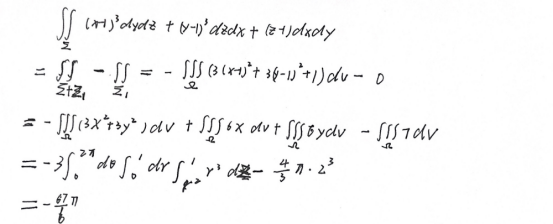 ∬_Σ (x-1)³dydz + (y-1)³dzdx + (z-1)dxdy
= ∬_{Σ+Σ₁} - ∬_{Σ₁} = - ∭_Ω (3(x-1)²+3(y-1)²+1)dv - 0
= - ∭_Ω (3x²+3y²)dv + ∭_Ω 6x dv + ∭_Ω 6y dv - ∭_Ω 7dv
= -3∫₀^{2π} dθ ∫₀¹ dr ∫_{r²}¹ r³ dz - 4/3 π · 2³
= - 67/6 π